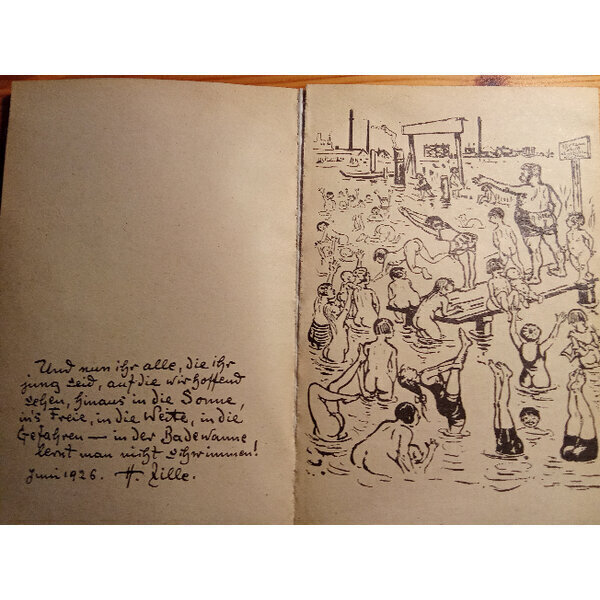 Und nun ihr alle, die ihr
jung seid, auf die wir hoffend
sehen, hinaus in die Sonne,
in's Freie, in die Weite, in die
Gefahren — in der Badewanne
lernt man nicht schwimmen!
Juni 1926. H. Zille.